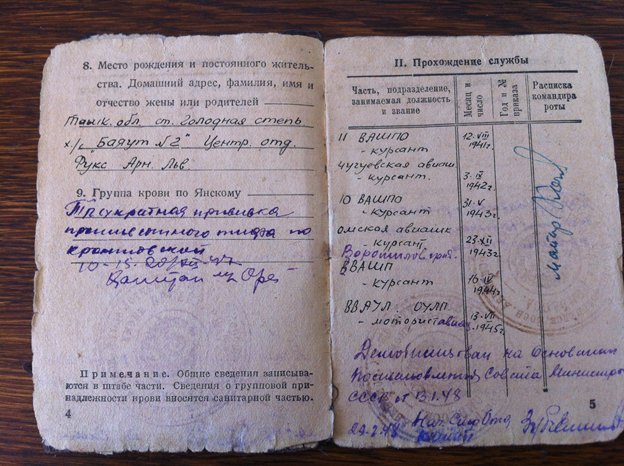 8. Место рождения и постоянного жительства. Домашний адрес, фамилия, имя и
отчество жены или родителей
Ташк. обл ст. Голодная степь
х/с "Баяут №2" Центр. отд.
Фукс Арн. Льв
9. Группа крови по Янскому
Трехкратная прививка
по
Капитан
Примечание. Общие сведения записываются в штабе части. Сведения о групповой принадлежности крови вносятся санитарной частью.
4
II. Прохождение службы
Часть, подразделение, занимаемая должность и звание
Месяц и число
Год и № приказа
Расписка командира роты
11 ВАШПО
- курсант
12-VIII
1941г.
Чугуевская авиаш
- курсант.
1942г.
10 ВАШПО
- курсант
31-V
1943г.
омская авиашк
- курсант
23-XII
1943г.
Ворошиловград.
ВВАШП
- курсант
16-IV
1944г.
8 ВАУЛ ОУЛП
- моторист
13-VII
1945г.
майор
Демобилизован на основании
Постановления Совета Министров
СССР от 13.1.48
Нач.
5